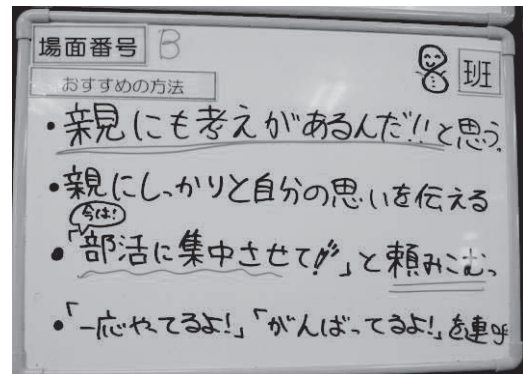 場面番号 B
8 班
おすすめの方法
・親にも考えがあるんだ!!と思う。
・親にしっかりと自分の思いを伝える
今は!
・「部活に集中させて!!」と頼みこむっ
・「一応やってるよ!」「がんばってるよ!」を連呼